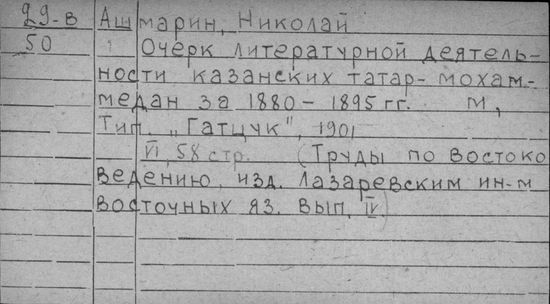 29-в Ашмарин, Николай
50 Очерк литературной деятель-
ности казанских татар-мохам-
медан за 1880-1895 гг. М,
Тип. „Гатцук", 1901
VI, 58 стр. (Труды по востоко
ведению, изд. Лазаревским ин-м
восточных яз. вып. IV)